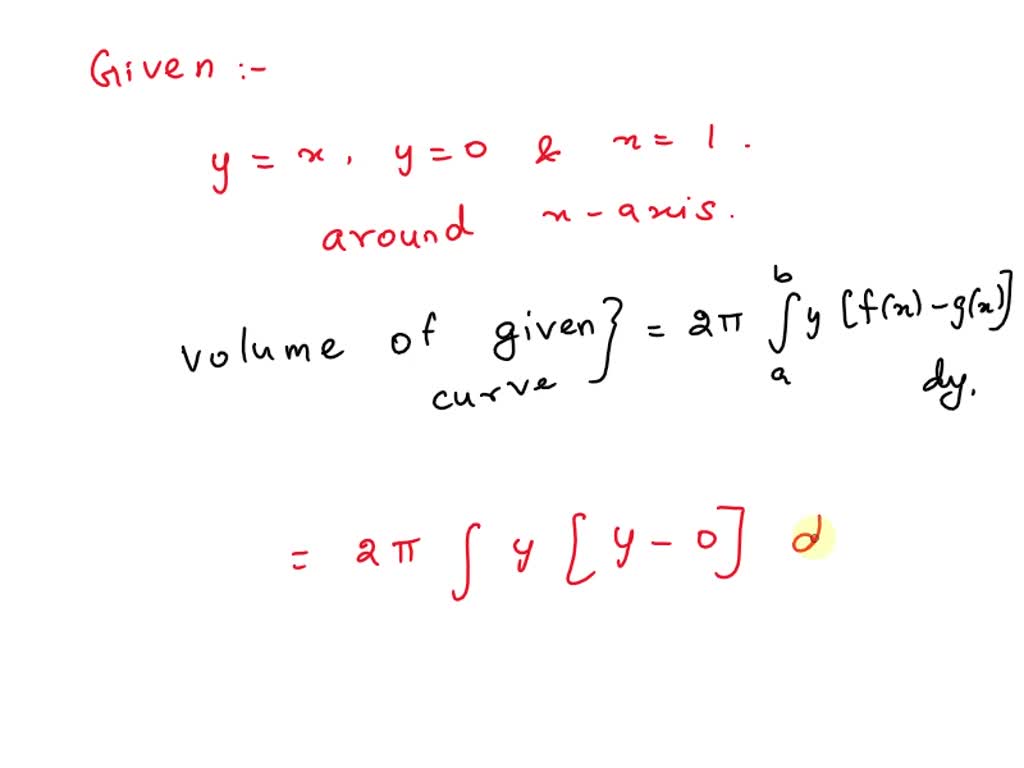 Given :-
y = x, y = 0 & x = 1.
around x-axis.
volume of given } = 2π ∫ₐᵇ y [f(x) - g(x)]
curve dy.
= 2π ∫ y [y - 0] d